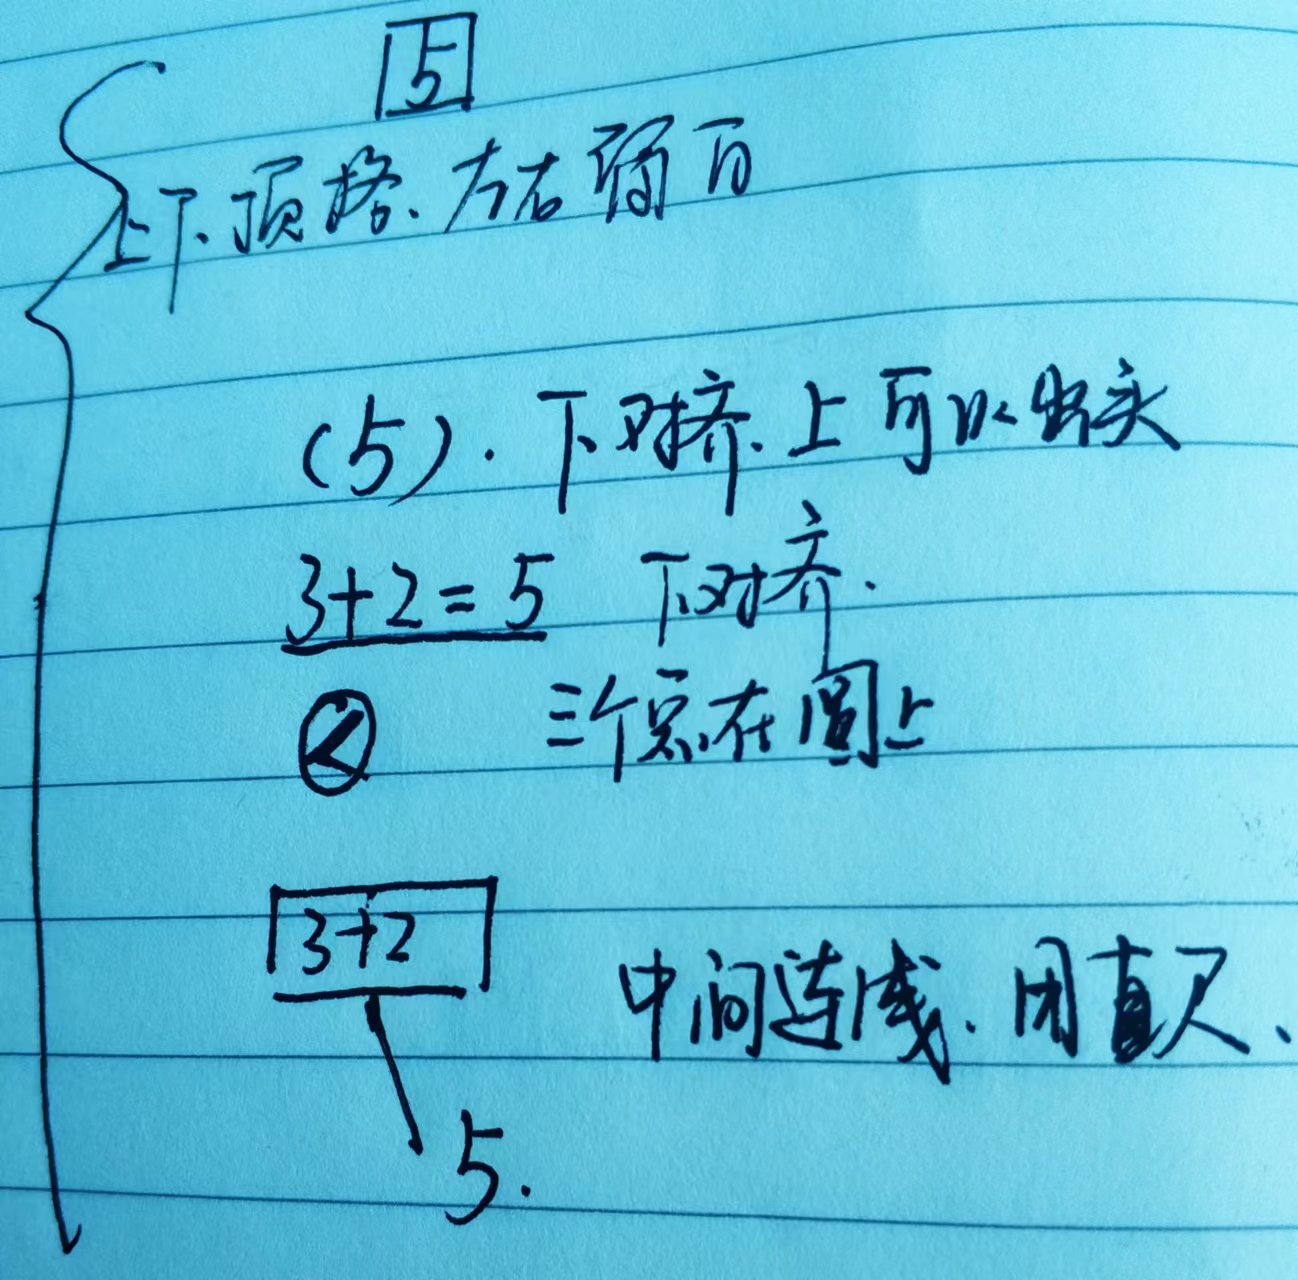 5
上下.顶格.左右留白
(5).下对齐.上可以出头
3+2=5 下对齐.
< 三个点在圆上
3+2
中间连线.用直尺、
5.